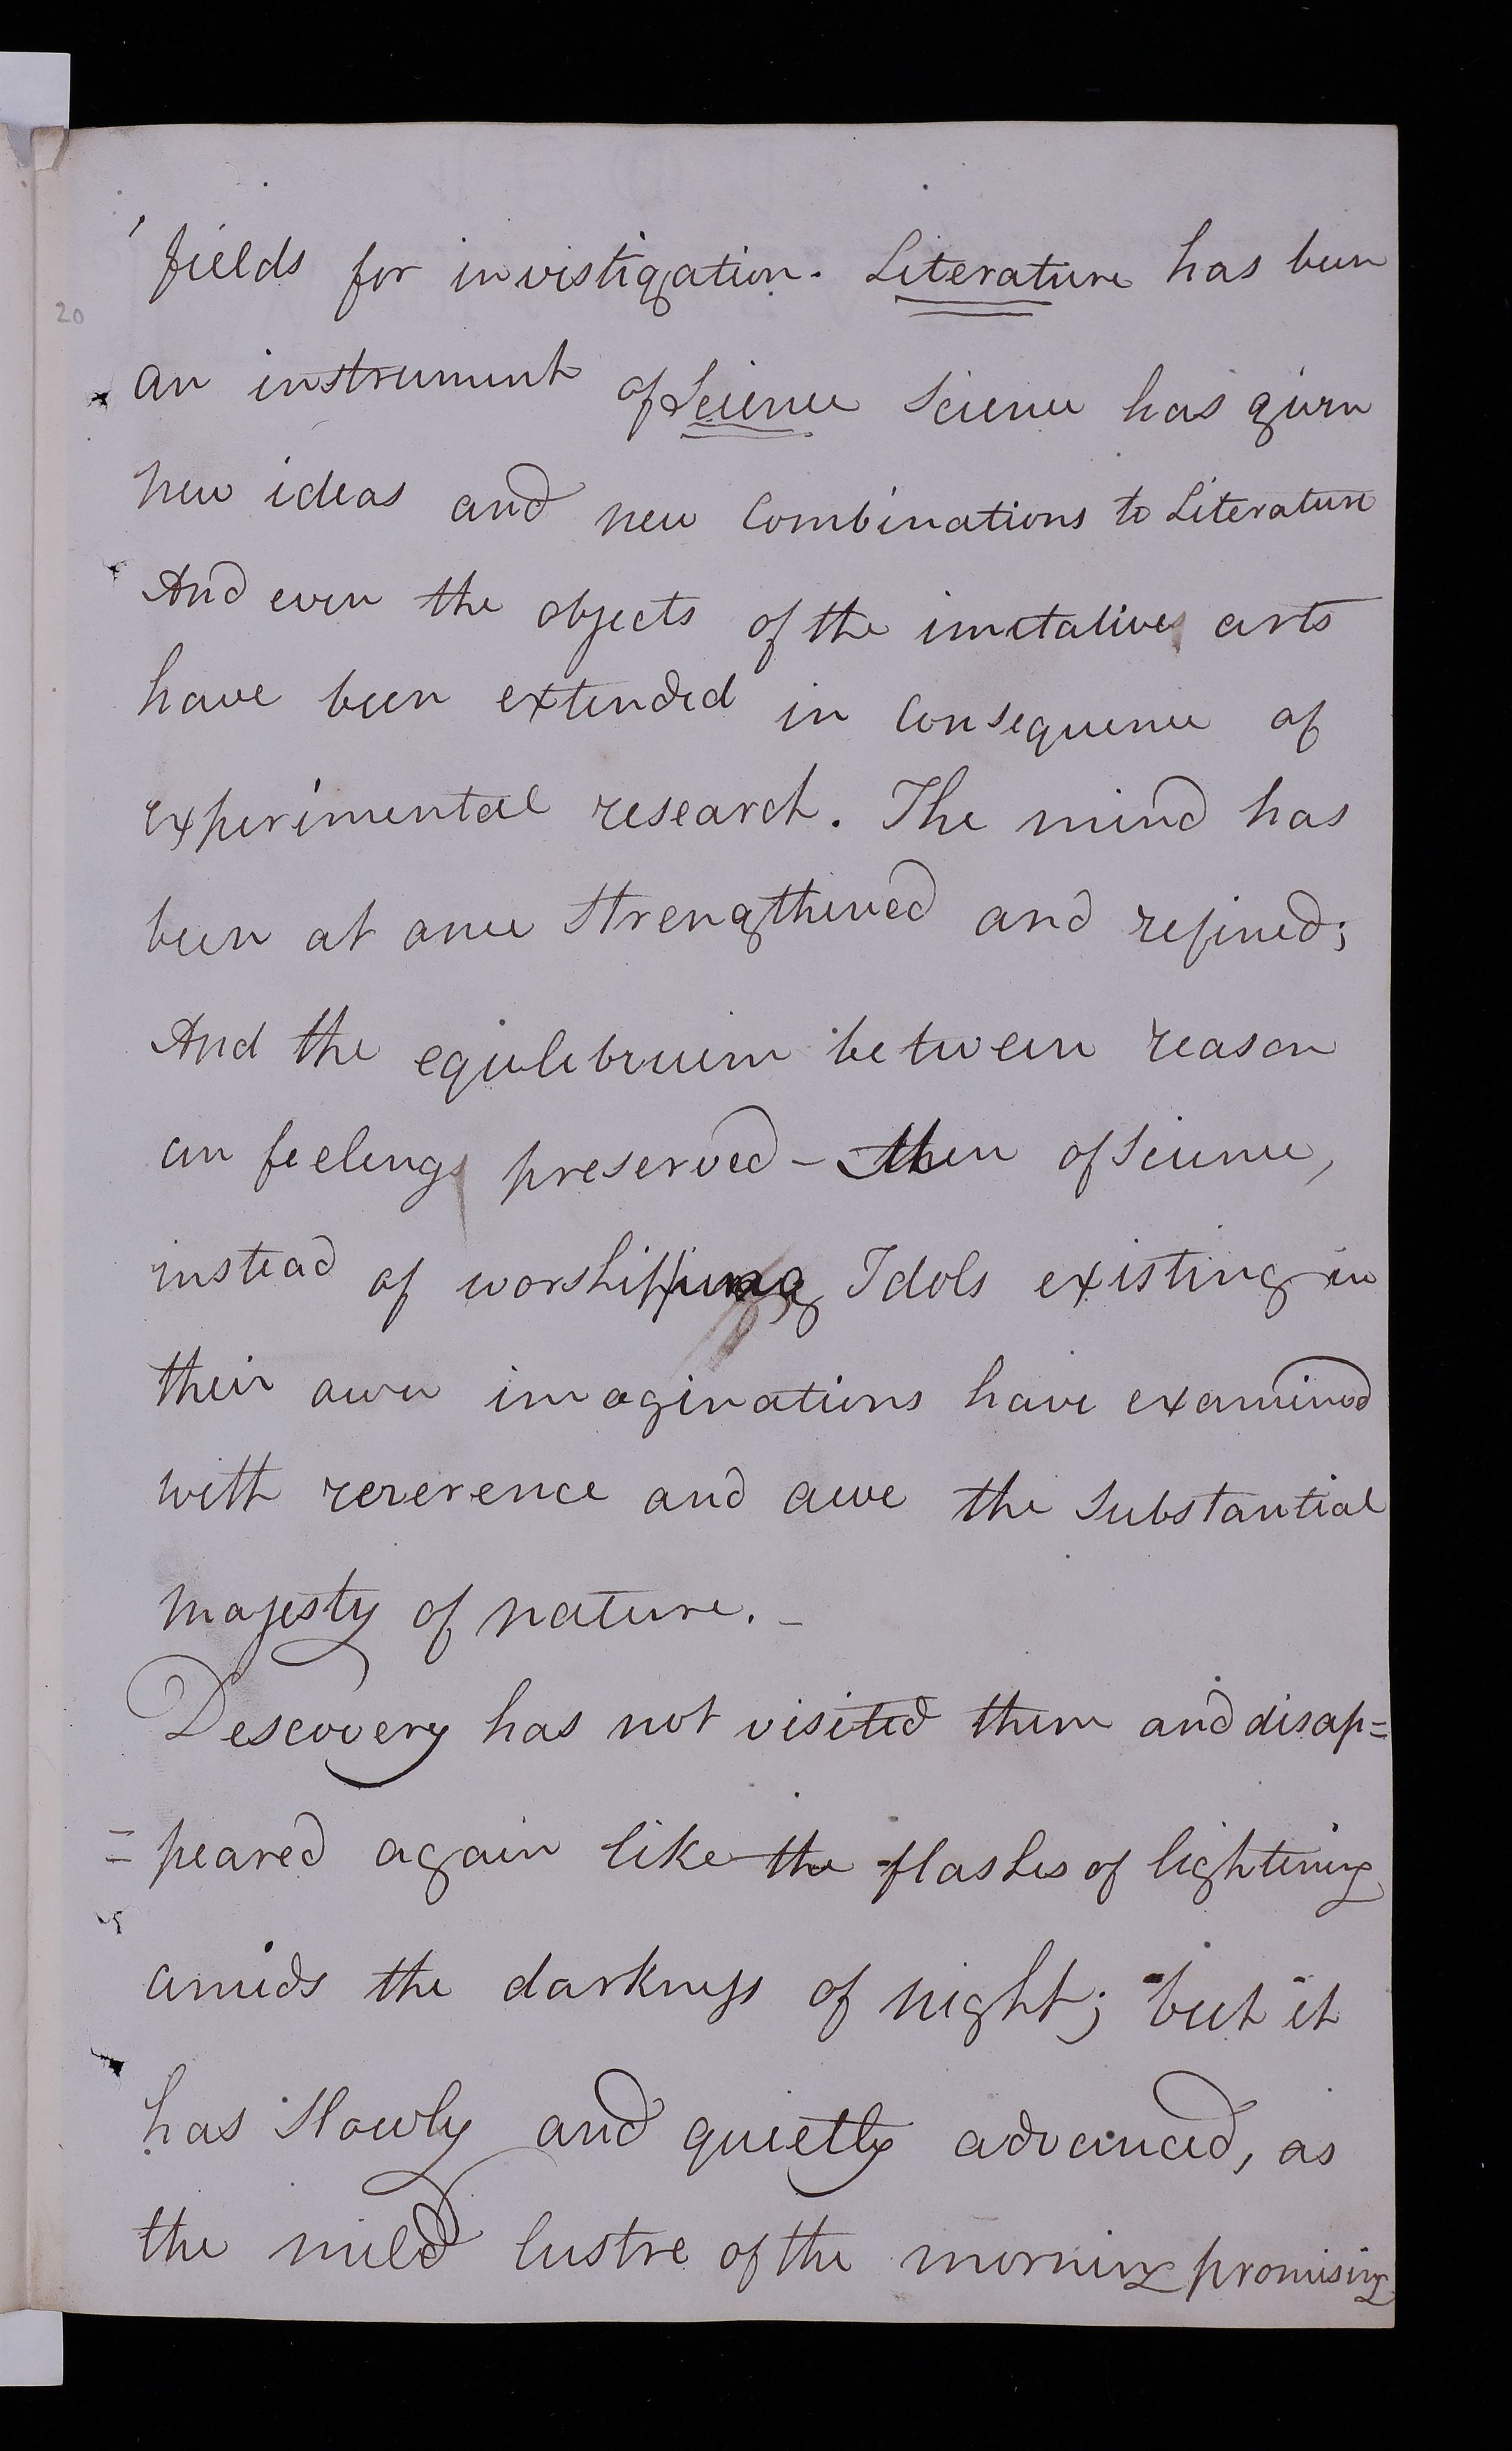 fields for investigation. Literature has been
20
an instrument of Science Science has given
new ideas and new Combinations to Literature
And even the objects of the imitative arts
have been extended in Consequence of
experimental research. The mind has
been at once strengthened and refined;
And the equilibrium between reason
an feelings preserved – Men of Science,
instead of worshipping Idols existing in
their own imaginations have examined
with reverence and awe the Substantial
majesty of nature. –
Descovery has not visited them and disap=
=peared again like the flashes of lightening
amids the darkness of night; but it
has Slowly and quietly advanced, as
the mild lustre of the morning promising